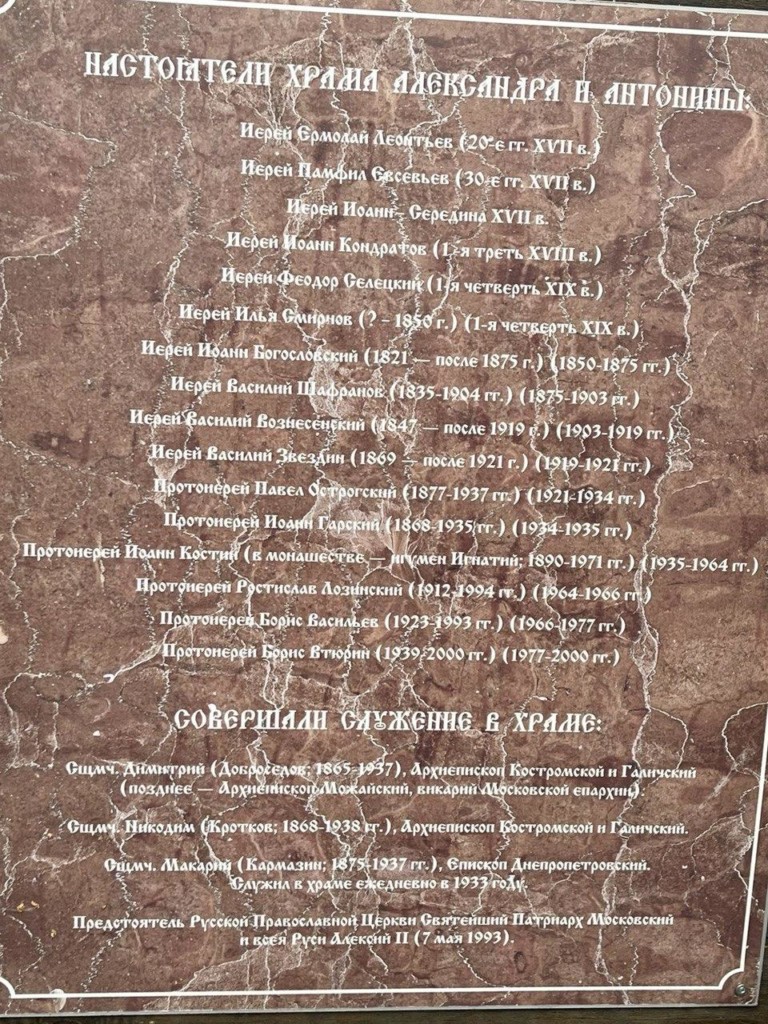 НАСТОЯТЕЛИ ХРАМА АЛЕКСАНДРА И АНТОНИНЫ:
Иерей Ермолай Леонтьев (20-е гг. XVII в.)
Иерей Памфил Евсевьев (30-е гг. XVII в.)
Иерей Иоанн - Середина XVII в.
Иерей Иоанн Кондратов (1-я треть XVIII в.)
Иерей Феодор Селецкий (1-я четверть XIX в.)
Иерей Илья Смирнов (? – 1850 г.) (1-я четверть XIX в.)
Иерей Иоанн Богословский (1821 — после 1875 г.) (1850-1875 гг.)
Иерей Василий Шафранов (1835-1904 гг.) (1875-1903 гг.)
Иерей Василий Вознесенский (1847 — после 1919 г.) (1903-1919 гг.)
Иерей Василий Звездин (1869 — после 1921 г.) (1919-1921 гг.)
Протоиерей Павел Острогский (1877-1937 гг.) (1921-1934 гг.)
Протоиерей Иоанн Гарский (1868-1935 гг.) (1934-1935 гг.)
Протоиерей Иоанн Костин (в монашестве — игумен Игнатий; 1890-1971 гг.) (1935-1964 гг.)
Протоиерей Ростислав Лозинский (1912-1994 гг.) (1964-1966 гг.)
Протоиерей Борис Васильев (1923-1993 гг.) (1966-1977 гг.)
Протоиерей Борис Втюрин (1939-2000 гг.) (1977-2000 гг.)
СОВЕРШАЛИ СЛУЖЕНИЕ В ХРАМЕ:
Сщмч. Димитрий (Добросёлов; 1865-1937), Архиепископ Костромской и Галичский
(позднее — Архиепископ Можайский, викарий Московской епархии).
Сщмч. Никодим (Кротков; 1868-1938 гг.), Архиепископ Костромской и Галичский.
Сщмч. Макарий (Кармазин; 1875-1937 гг.), Епископ Днепропетровский.
Служил в храме ежедневно в 1933 году.
Предстоятель Русской Православной Церкви Святейший Патриарх Московский
и всея Руси Алексий II (7 мая 1993).